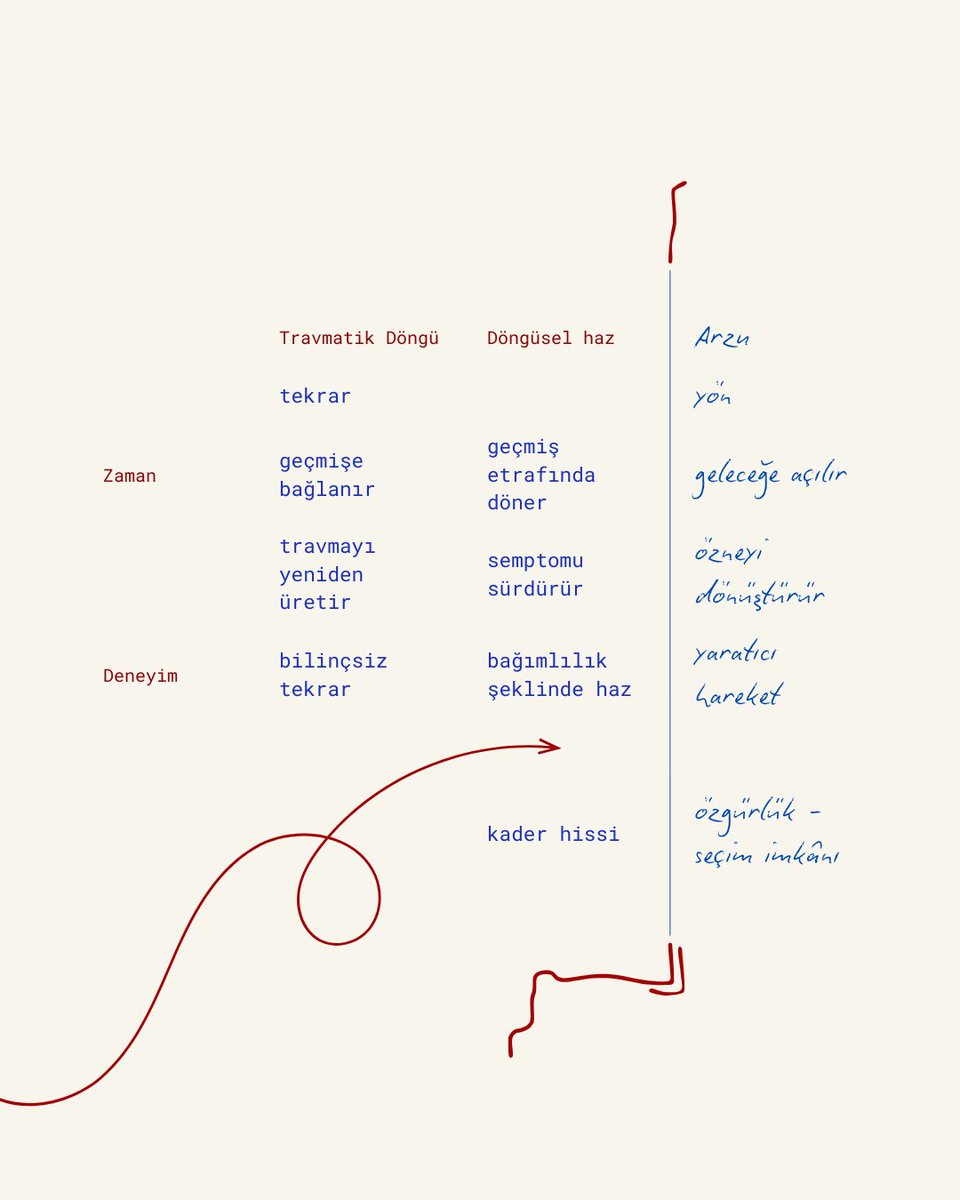 Travmatik Döngü Döngüsel haz Arzu
tekrar yön
Zaman
geçmişe
bağlanır
geçmiş
etrafında
döner
geleceğe açılır
travmayı
yeniden
üretir
semptomu
sürdürür
özneyi
dönüştürür
Deneyim
bilinçsiz
tekrar
bağımlılık
şeklinde haz
yaratıcı
hareket
kader hissi
özgürlük -
seçim imkânı